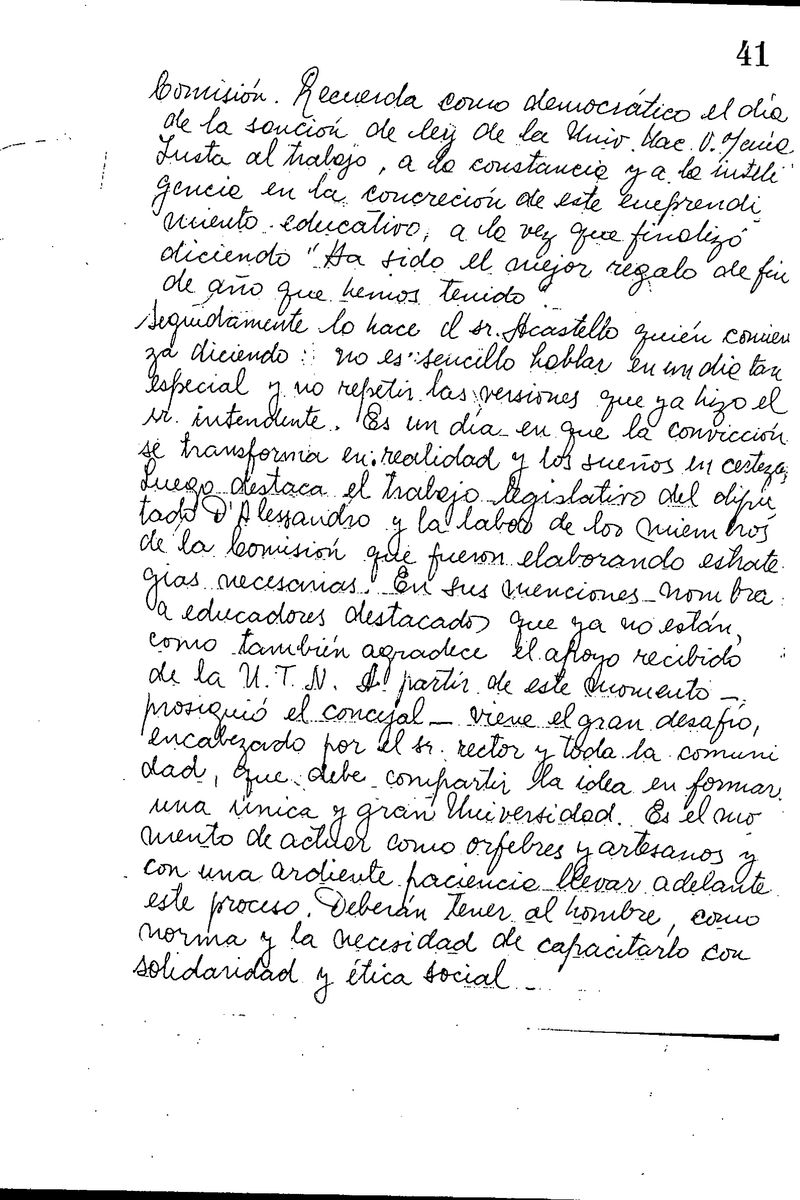 41
Comisión. Recuerda como democrático el día
de la sanción de ley de la Univ. Nac. V. María
Insta al trabajo, a la constancia y a la inteli
gencia en la concreción de este emprendi
miento educativo, a la vez que finalizó
diciendo "Ha sido el mejor regalo de fin
de año que hemos tenido
Seguidamente lo hace el sr. Acastello quién comien
za diciendo: no es sencillo hablar en un día tan
especial y no repetir las versiones que ya hizo el
sr. intendente. Es un día en que la convicción
se transforma en realidad y los sueños en certeza,
Luego destaca el trabajo legislativo del dipu
tado D'Alessandro y la labor de los miembros
de la Comisión que fueron elaborando estrate
gias necesarias. En sus menciones nombra
a educadores destacados que ya no están,
como también agradece el apoyo recibido
de la U.T.N. A partir de este momento —
prosiguió el concejal — viene el gran desafío,
encabezado por el sr. rector y toda la comuni
dad, que debe compartir la idea en formar
una única y gran Universidad. Es el mo
mento de actuar como orfebres y artesanos y
con una ardiente paciencia llevar adelante
este proceso. Deberán tener al hombre, como
norma y la necesidad de capacitarlo con
solidaridad y ética social —